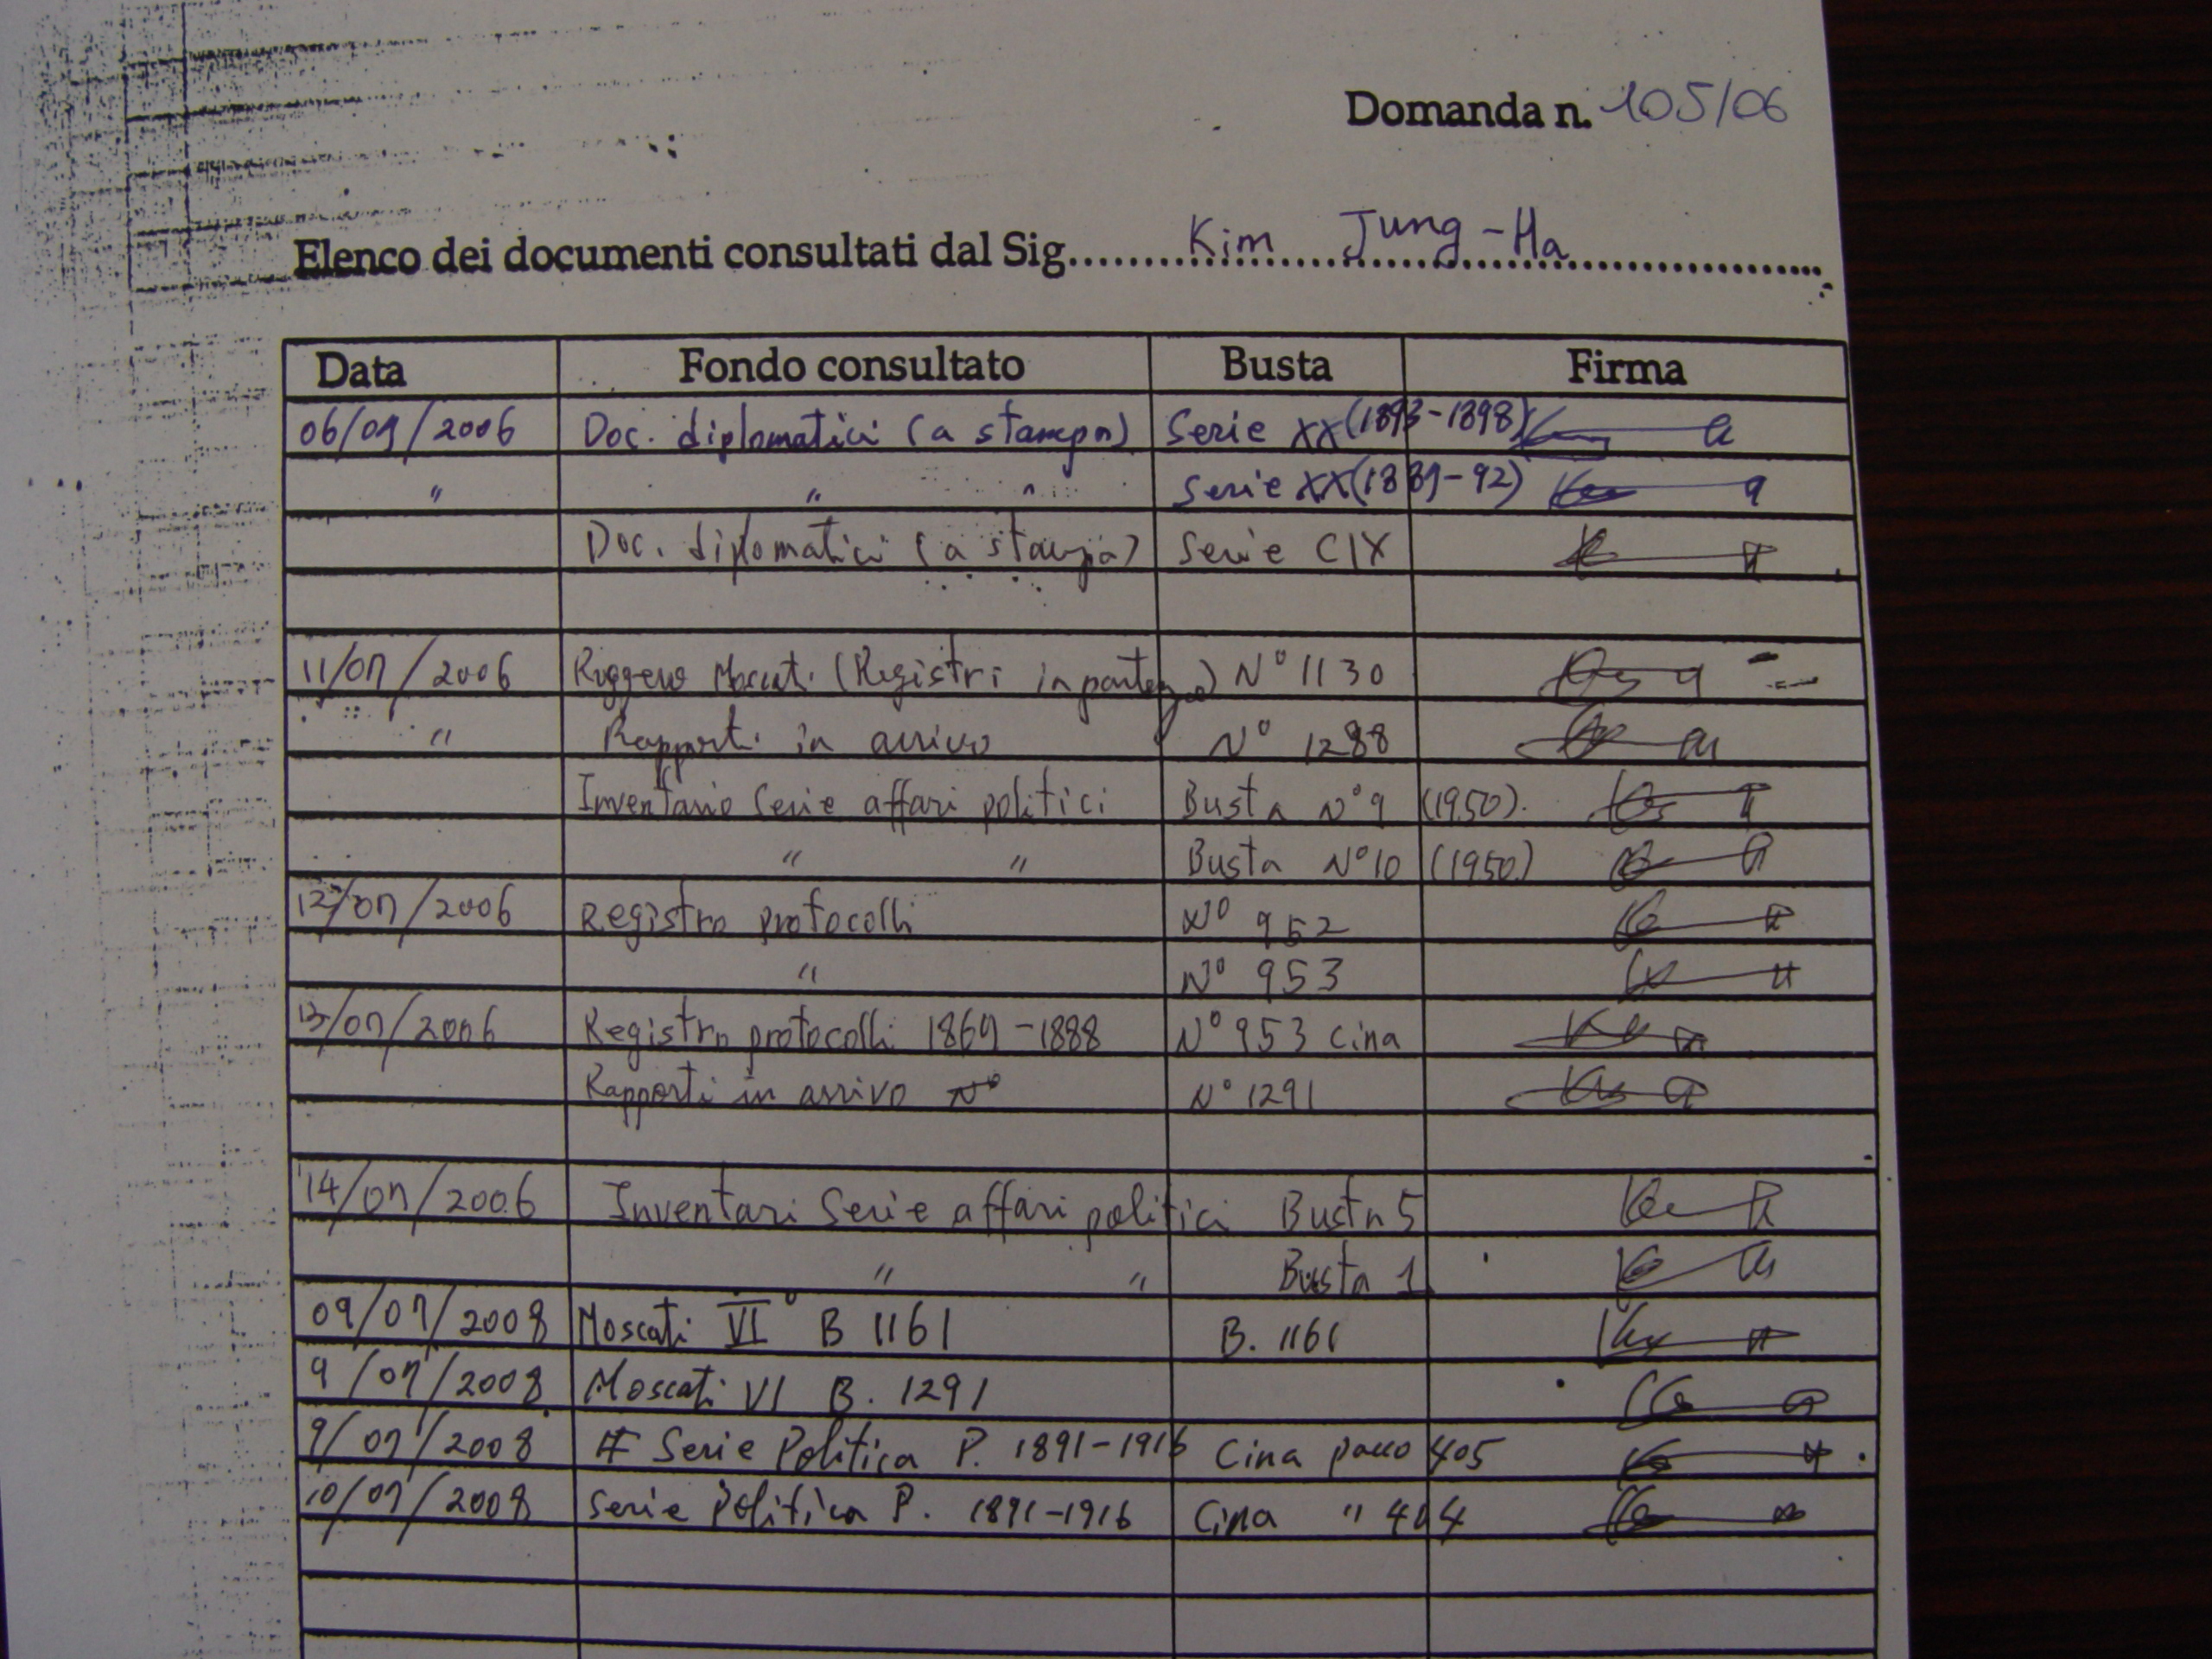 Domanda n. 105/06
Elenco dei documenti consultati dal Sig. Kim Jung-Ha
Data Fondo consultato Busta Firma
06/07/2006 Doc. diplomatici (a stampa) Serie XX (1893-1898)
" " " Serie XX (1889-92)
Doc. diplomatici (a stampa) Serie CIX
11/07/2006 Ruggero Moscati (Registri in partenza) N° 1130
" Rapporti in arrivo N° 1288
Inventario Serie affari politici Busta N° 9 (1950).
" " Busta N° 10 (1950)
12/07/2006 Registro protocolli N° 952
" N° 953
13/07/2006 Registro protocolli 1869-1888 N° 953 Cina
Rapporti in arrivo N° N° 1291
14/07/2006 Inventari Serie affari politici Busta 5
" " Busta 1
09/07/2008 Moscati VI° B 1161 B. 1161
9/07/2008 Moscati VI B. 1291
9/07/2008 Serie Politica P. 1891-1916 Cina pacco 405
10/07/2008 Serie Politica P. 1891-1916 Cina " 404